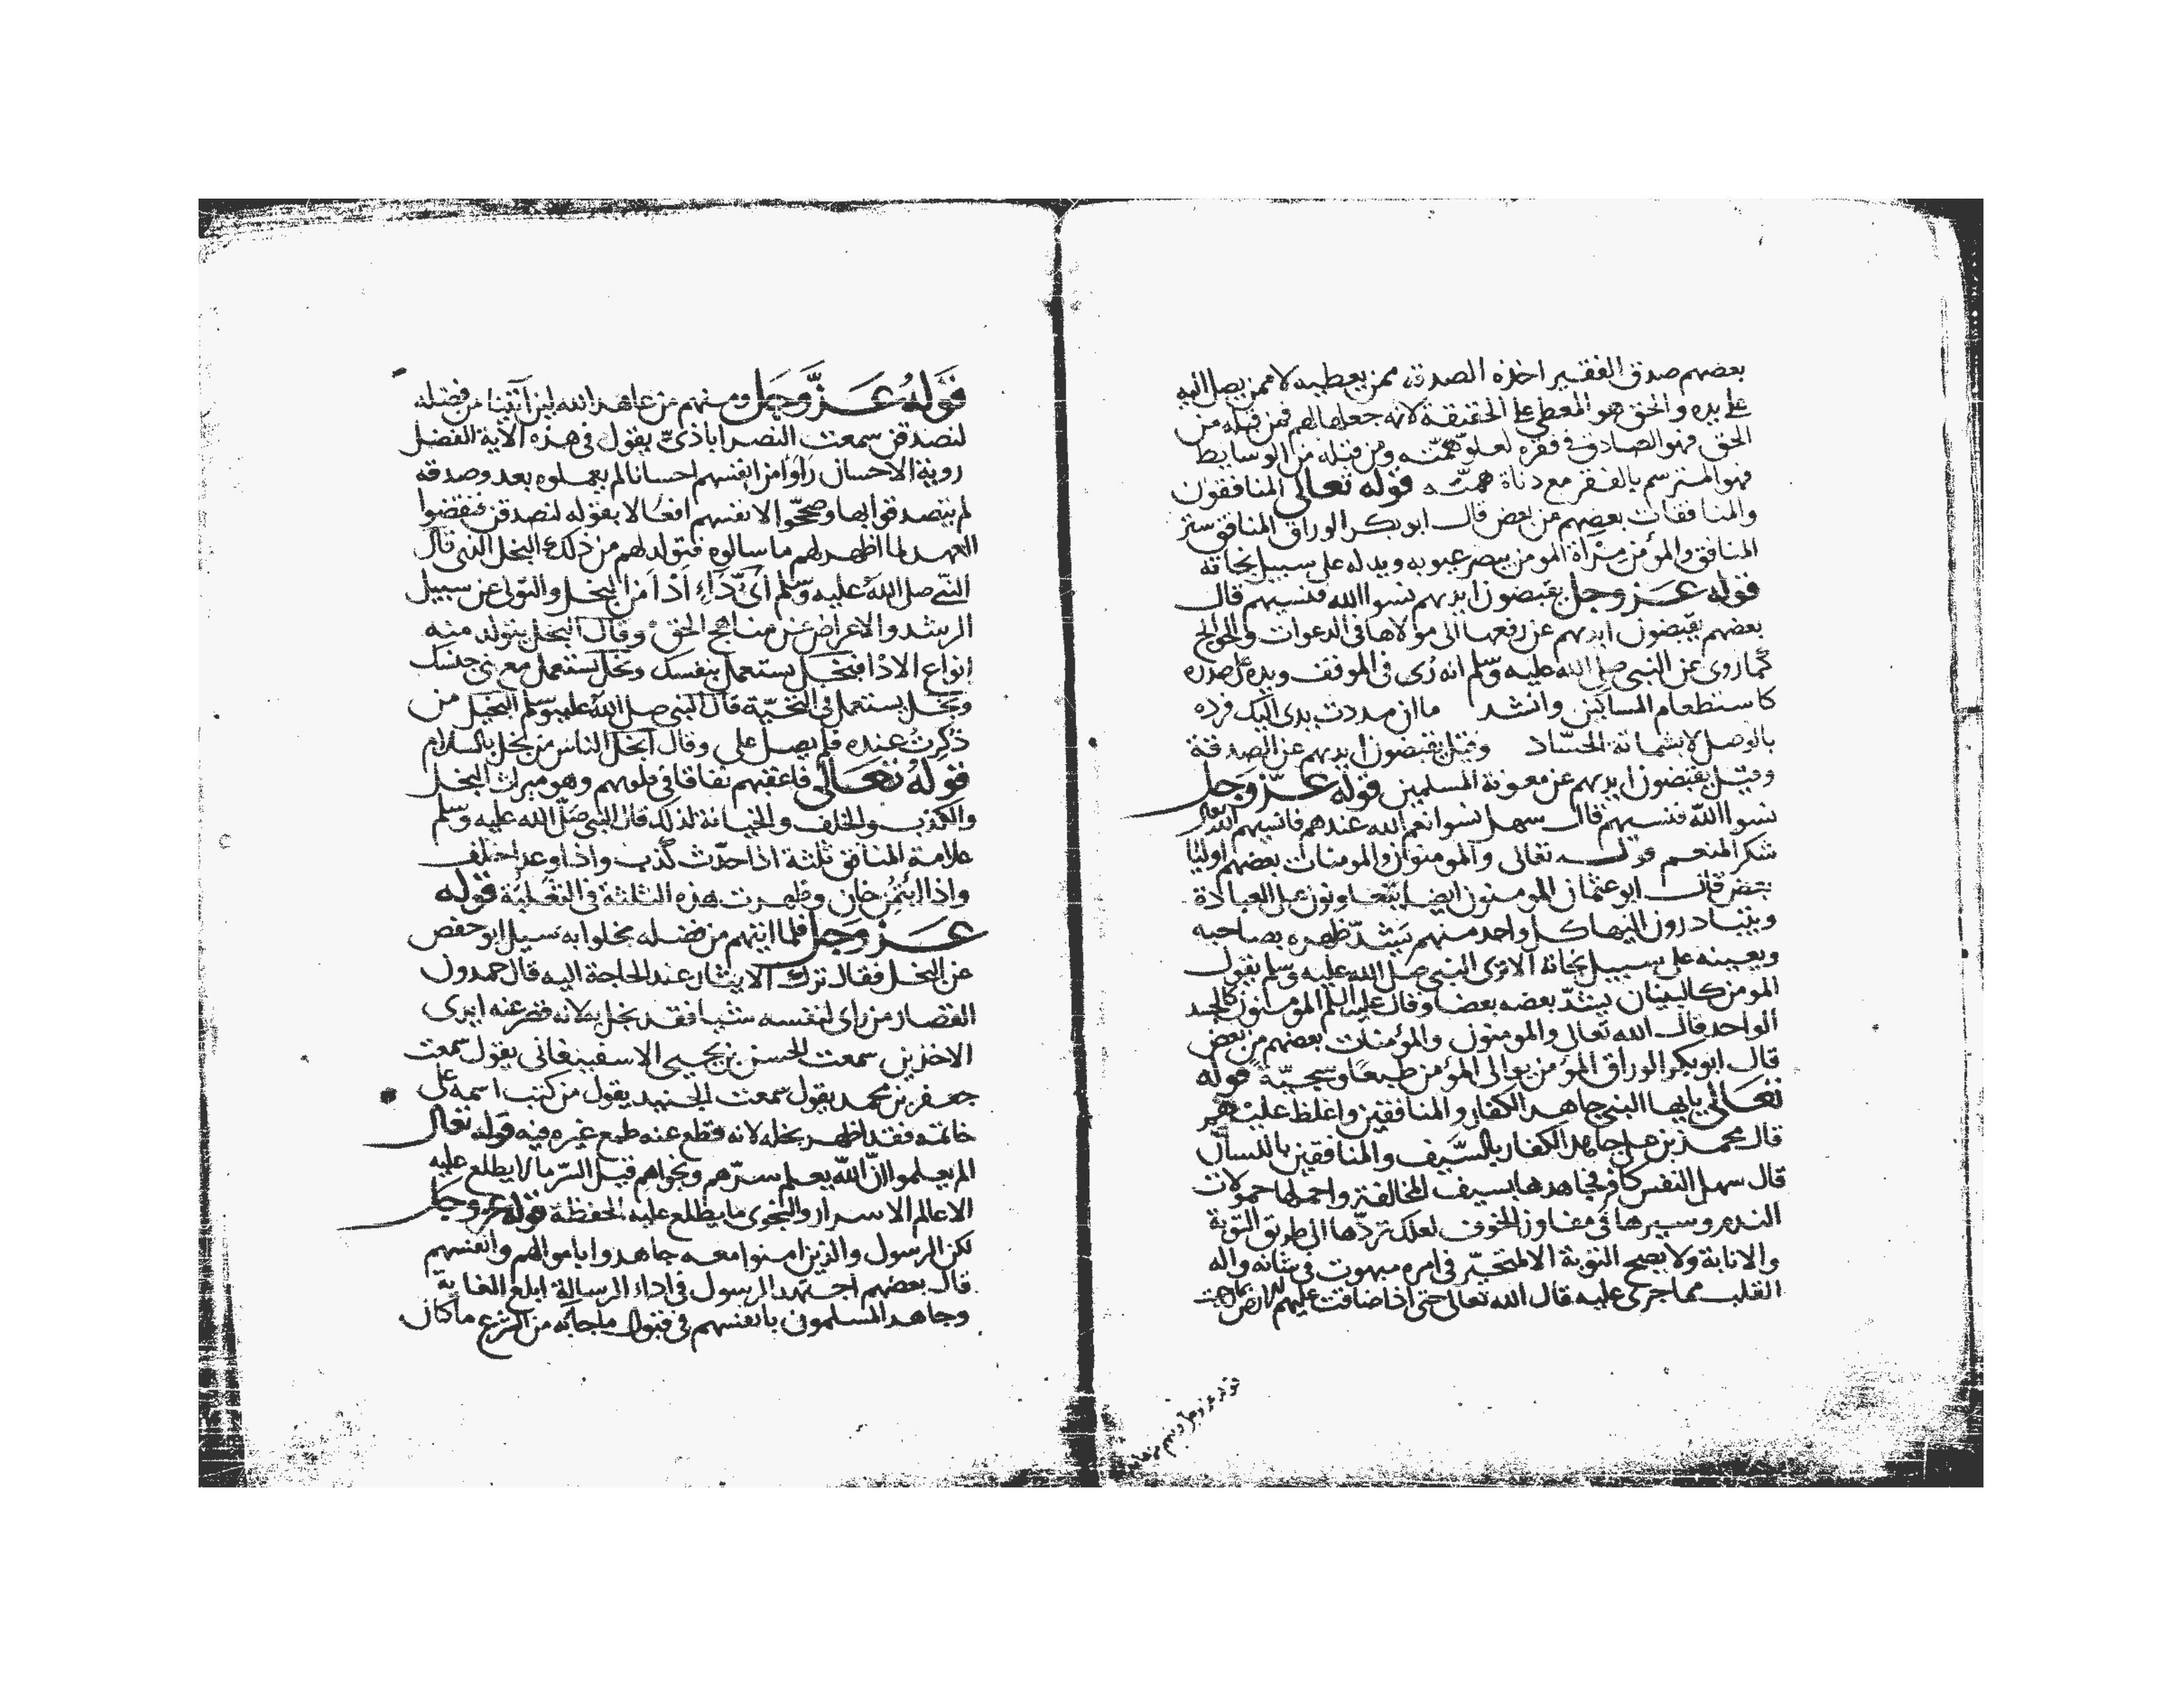 بعضهم صدق الفقير اخذه الصدقة ممن يعطيه لا ممن يصل اليه
على يده والحق هو المعطي على الحقيقة لانه جعلها لهم فمن قبله من
الحق فهو الصادق في فقره لعلو همته ومن قبله من الوسايط
فهو المترسم بالفقر مع دناة همته قوله تعالى المنافقون
والمنافقات بعضهم من بعض قال ابو بكر الوراق المنافق ستر
المنافق والمؤمن مرآة المومن يبصر عيوبه ويدله على سبيل نجاته
قوله عز وجل يقبضون ايديهم نسوا الله فنسيهم قال
بعضهم يقبضون ايديهم عن رفعها الى مولاها في الدعوات والحوائج
كما روي عن النبي صلى الله عليه وسلم انه رُئى في الموقف ويده على صدره
كاستطعام المساكين وانشد ما ان مددت يدى اليك فرده
بالوصل لا بشماتة الحساد وقيل يقبضون ايديهم عن الصدقة
وقيل يقبضون ايديهم عن معونة المسلمين قوله عز وجل
نسوا الله فنسيهم قال سهل نسوا نعم الله عندهم فانسيهم الله
شكر المنعم قوله تعالى والمومنون والمومنات بعضهم اوليا
بعض قال ابو عثمان المومنون ايضا يتعاونون على العبادة
ويتبادرون اليها كل واحد منهم يشد ظهره بصاحبه
ويعينه على سبيل نجاته الا ترى النبي صلى الله عليه وسلم يقول
المومن كالبنيان يشد بعضه بعضا وقال عليه السلم المومنون كالجسد
الواحد قال الله تعالى والمومنون والمؤمنات بعضهم من بعض
قال ابو بكر الوراق المؤمن يوالى المؤمن طبعا وسجية قوله
تعالى يايها النبي جاهد الكفار والمنافقين واغلظ عليهم
قال محمد بن على جاهد الكفار بالسيف والمنافقين باللسان
قال سهل النفس كافر فجاهدها بسيف المخالفة واحملها حمولات
الندم وسيرها في مفاوز الخوف لعلك تردها الى طريق التوبة
والانابة ولا يصح التوبة الا لمتحير في امره مبهوت في شانه واله
القلب مما جرى عليه قال الله تعالى حتى اذا ضاقت عليهم الارض بما رحبت
قوله عز وجل ومنهم من عاهد
قوله عز وجل ومنهم من عاهد الله لين آتينا من فضله
لنصدقن سمعت النصراباذى يقول في هذه الآية الفضل
روية الاحسان راوا من انفسهم احسانا لم يعملوه بعد وصدقة
لم يتصدقوا بها وصححوا لانفسهم افعالا بقوله لنصدقن فنقضوا
العهد لما اظهر لهم ما سالوه فتولد لهم من ذلك البخل الذى قال
النبي صلى الله عليه وسلم اىّ دَاءٍ ادا من البخل والتولي عن سبيل
الرشد والاعراض عن مناهج الحق وقال البخل يتولد منه
انواع الاذا فبخل يستعمل بنفسك وبخل يستعمل مع بني جنسك
وبخل يستعمل في التحية قال النبي صلى الله عليه وسلم البخيل من
ذكرت عنده فلم يصل على وقال ابخل الناس من بخل بالسلام
قوله تعالى فاعقبهم نفاقا في قلوبهم وهو ميراث البخل
والكذب والخلف والخيانة لذلك قال النبي صلى الله عليه وسلم
علامة المنافق ثلثة اذا حدث كذب واذا وعد اخلف
واذا ايتمن خان وظهرت هذه الثلثة في الثعلبة قوله
عز وجل فلما اتيهم من فضله بخلوا به سيل ابو حفص
عن البخل فقال ترك الايثار عند الحاجة اليه قال حمدون
القصار من راى لنفسه شيا فقد بخل به لانه قصر عنه ايدى
الاخرين سمعت الحسن بن يحيى الاسفينغاني يقول سمعت
جعفر بن محمد يقول سمعت الجنيد يقول من كتب اسمه على
خاتمه فقد اظهر بخله لانه قطع عنه طمع غيره فيه قوله تعالى
الم يعلموا ان الله يعلم سرهم ونجواهم قيل السر ما لا يطلع عليه
الا عالم الاسرار والنجوى ما يطلع عليه الحفظة قوله عز وجل
لكن الرسول والذين امنوا معه جاهدوا باموالهم وانفسهم
قال بعضهم اجتهد الرسول في اداء الرسالة ابلغ الغاية
وجاهد المسلمون بانفسهم في قبول ما جا به من الشرع ما كان